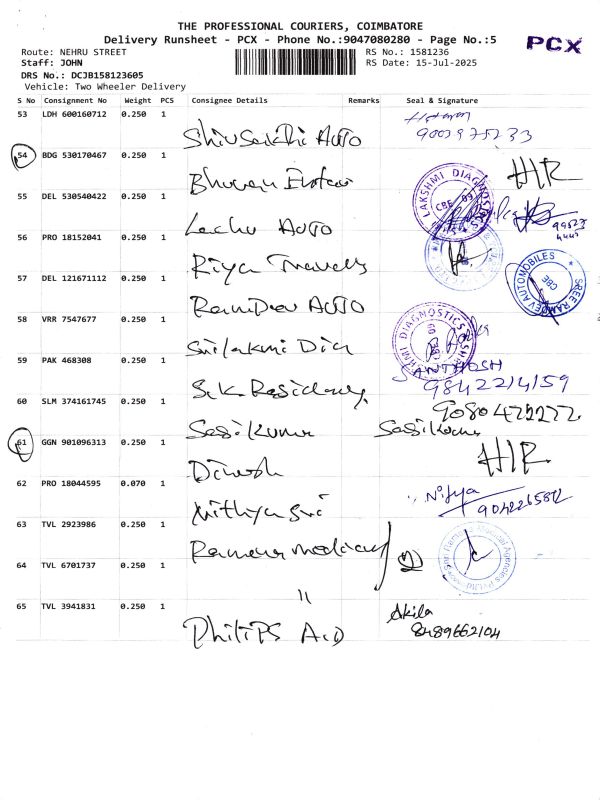 THE PROFESSIONAL COURIERS, COIMBATORE
Delivery Runsheet - PCX - Phone No.:9047080280 - Page No.:5
PCX
Route: NEHRU STREET
RS No.: 1581236
Staff: JOHN
RS Date: 15-Jul-2025
DRS No.: DCJB158123605
Vehicle: Two Wheeler Delivery
S No Consignment No Weight PCS Consignee Details Remarks Seal & Signature
53 LDH 600160712 0.250 1
Auto
54 BDG 530170467 0.250 1
HIR
55 DEL 530540422 0.250 1
Lachu Auto
LAKSHMI DIAGNOSTICS CBE
56 PRO 18152041 0.250 1
Riya Travels
57 DEL 121671112 0.250 1
RamDev Auto
SREE RAMDEV AUTOMOBILES CBE
58 VRR 7547677 0.250 1
59 PAK 468308 0.250 1
SANTHOSH
9842214159
S.K. Residency
60 SLM 374161745 0.250 1
Sasikumar
Sasikumar
61 GGN 901096313 0.250 1
Dinesh
HIR
62 PRO 18044595 0.070 1
Nithya Sri
Nithya
9042265812
63 TVL 2923986 0.250 1
64 TVL 6701737 0.250 1
"
65 TVL 3941831 0.250 1
PHILIPS A.D
Akila
8489662104